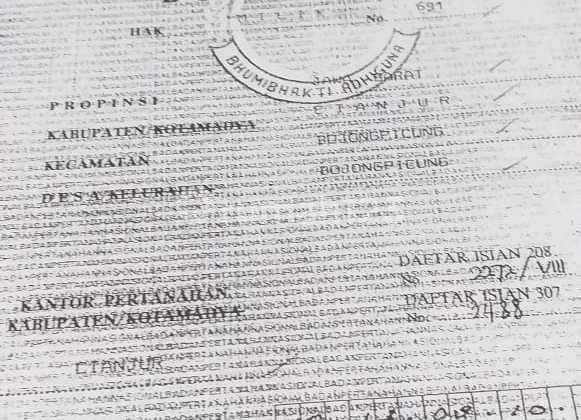 HAK MILIK No. 691
BHUMIBHAKTI ADHIGUNA
PROPINSI JAWA BARAT
KABUPATEN/KOTAMADYA CIANJUR
KECAMATAN BOJONGPICUNG
DESA/KELURAHAN BOJONGPICUNG
DAFTAR ISIAN 208
No. 2272/VIII
KANTOR PERTANAHAN DAFTAR ISIAN 307
KABUPATEN/KOTAMADYA No. 2488
CIANJUR